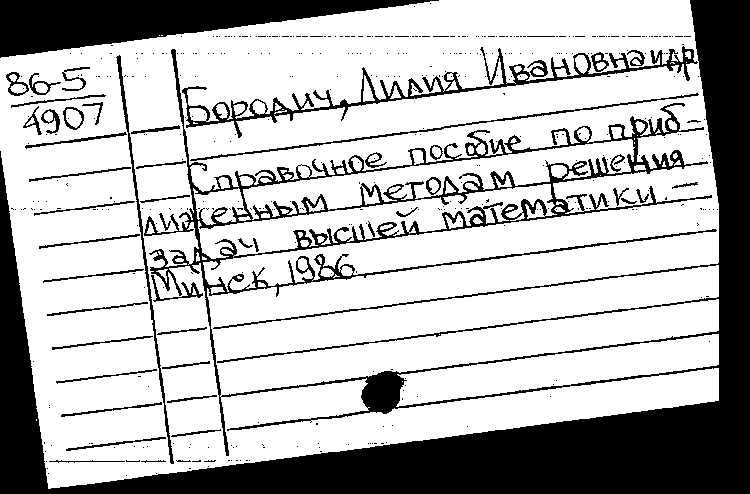 86-5
4907
Бородич, Лилия Ивановна и др
Справочное пособие по приб-
лиженным методам решения
задач высшей математики. —
Минск, 1986.